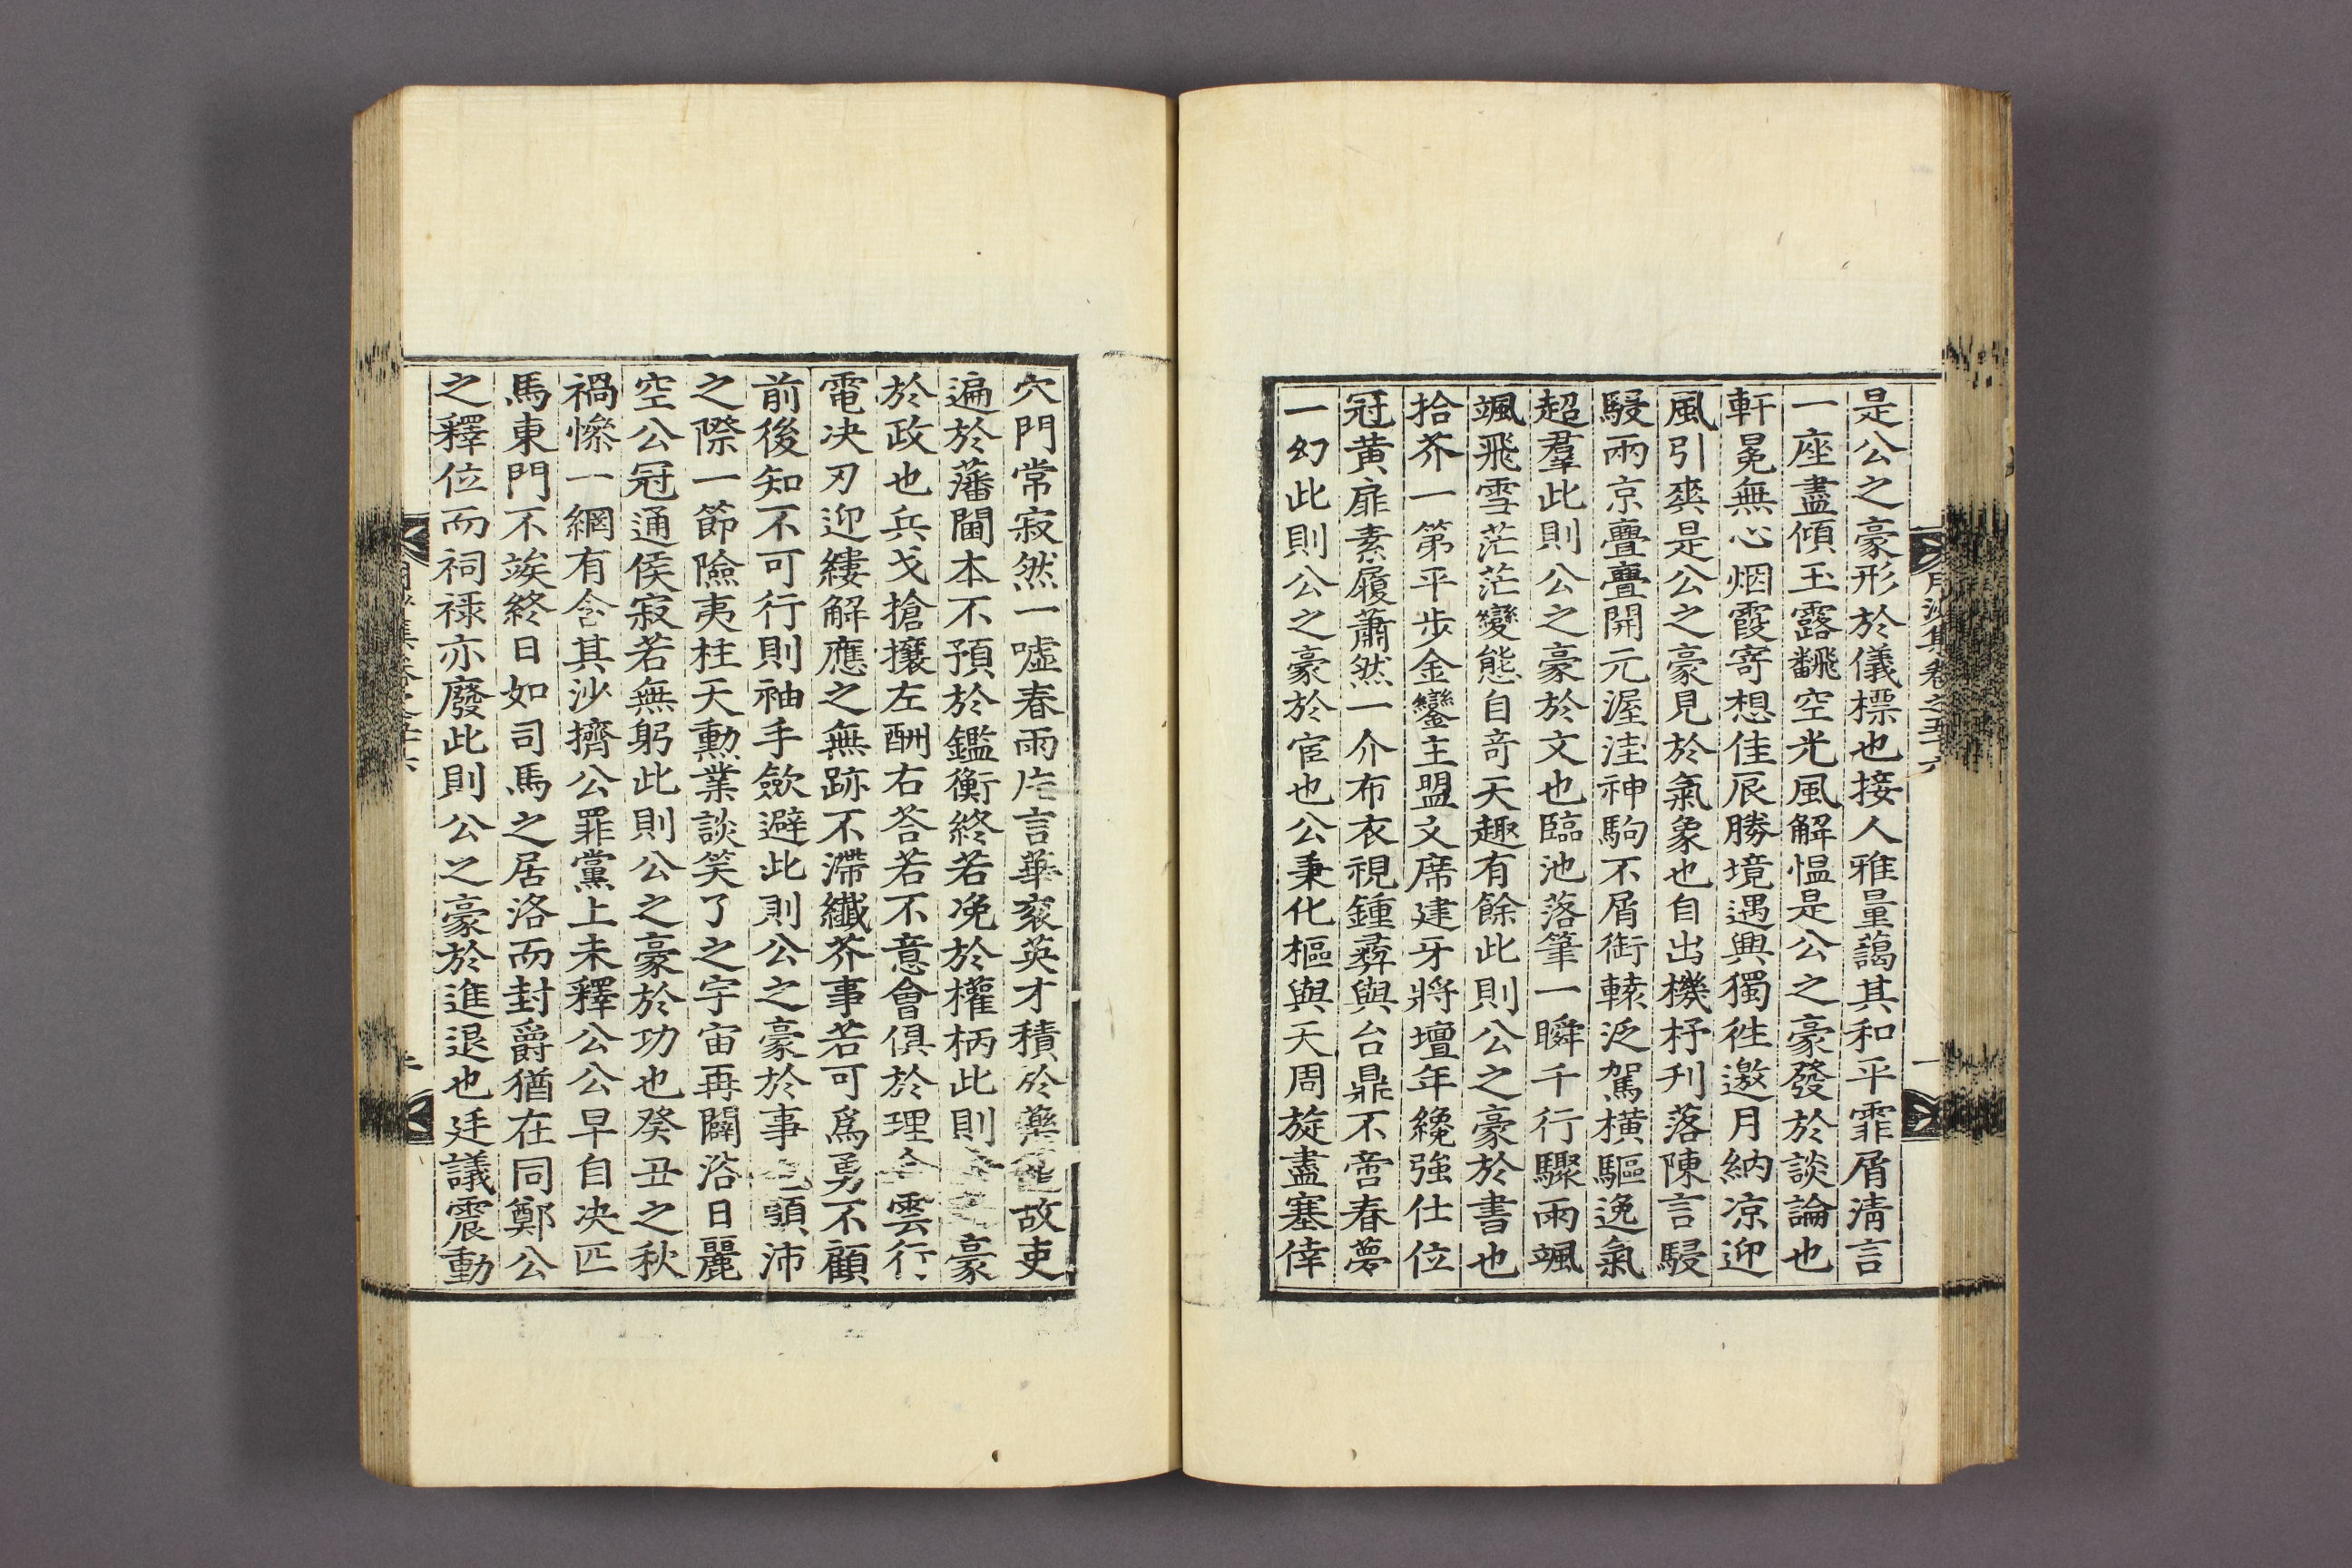 是公之豪形於儀標也接人雅量藹其和平霏屑淸言
一座盡傾玉露飜空光風解慍是公之豪發於談論也
軒冕無心烟霞寄想佳辰勝境遇興獨徃邀月納凉迎
風引爽是公之豪見於氣象也自出機杼刋落陳言駸
駸兩京亹亹開元渥洼神駒不屑銜轅泛駕橫驅逸氣
超羣此則公之豪於文也臨池落筆一瞬千行驟雨颯
颯飛雪茫茫變態自竒天趣有餘此則公之豪於書也
拾芥一第平步金鑾主盟文席建牙將壇年纔強仕位
冠黄扉素履蕭然一介布衣視鍾彛與台鼎不啻春夢
一幻此則公之豪於宦也公秉化樞與天周旋盡塞倖
穴門常寂然一噓春雨片言華衮英才積於藥籠故吏
遍於藩閫本不預於鑑衡終若凂於權柄此則豪
於政也兵戈搶攘左酬右荅若不意會俱於理合雲行
電决刃迎縷解應之無跡不滯纖芥事若可爲勇不顧
前後知不可行則袖手歛避此則公之豪於事也顚沛
之際一節險夷柱天勳業談笑了之宇宙再闢浴日麗
空公冠通侯寂若無躬此則公之豪於功也癸丑之秋
禍慘一網有含其沙擠公罪黨上未釋公公早自决匹
馬東門不竢終日如司馬之居洛而封爵猶在同鄭公
之釋位而祠祿亦廢此則公之豪於進退也廷議震動